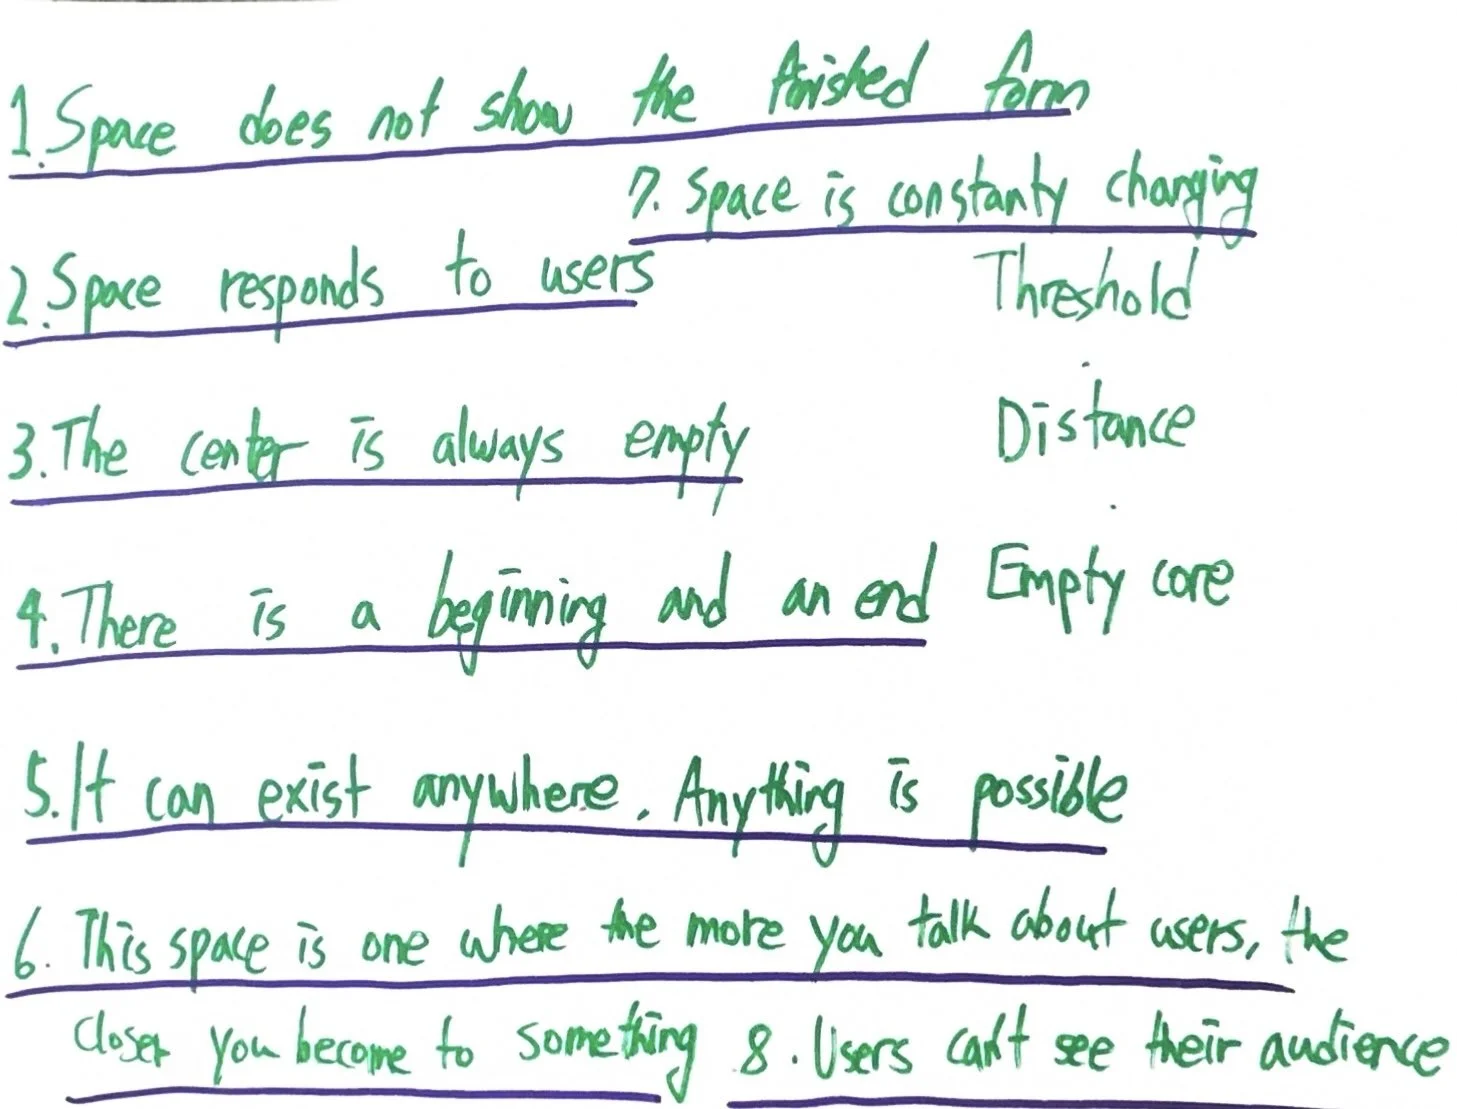 1. Space does not show the finished form
7. Space is constanty changing
2. Space responds to users
Threshold
Distance
3. The center is always empty
4. There is a beginning and an end
Empty core
5. It can exist anywhere. Anything is possible
6. This space is one where the more you talk about users, the
closer you become to something
8. Users can't see their audience